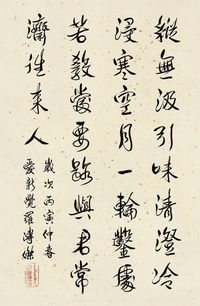 縱無汲引味清澄冷
浸寒空月一輪鑿處
若教當要路與君常
濟往来人
歲次丙寅仲春
愛新覺羅溥傑